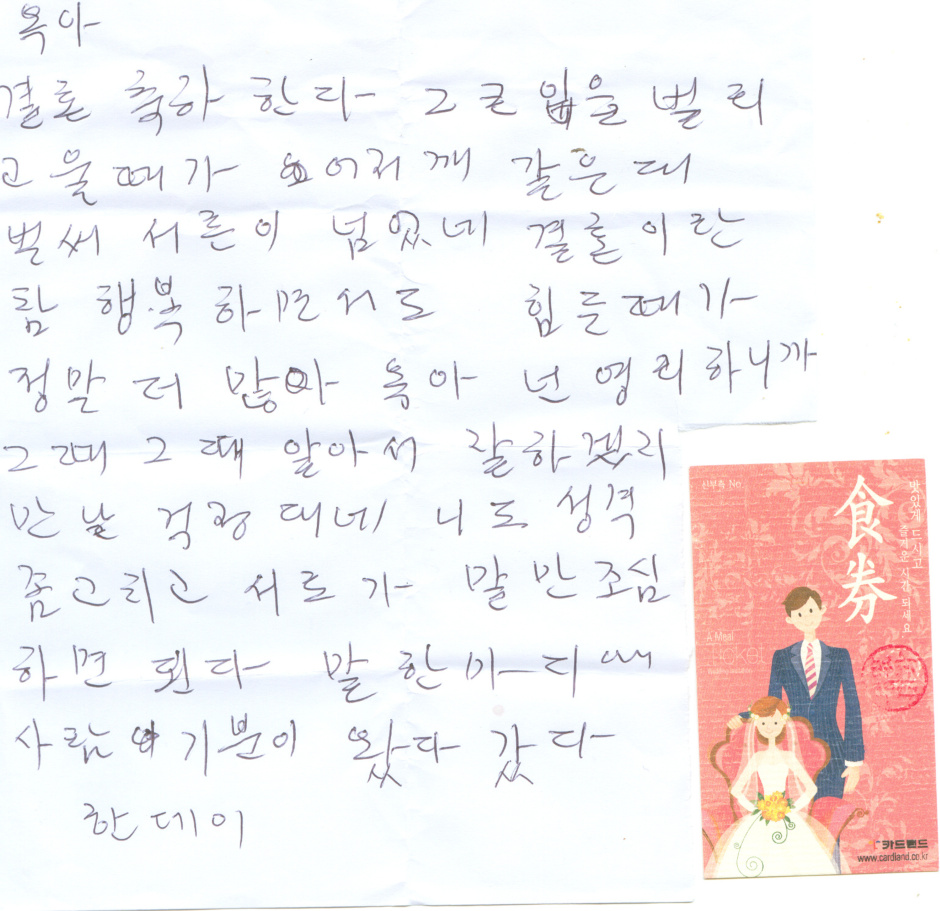 옥아
결혼 축하 한다 그 큰 입을 벌리
고 울때가 어리깨 같은데
벌써 서른이 넘었네 결혼이란
탐 행복 하면서도 힘든때가
정말 더 많아 옥아 넌 영리하니까
그때 그때 알아서 잘하겠지
만 난 걱정 대네 니도 성격
좀 그리고 서로가 말만 조심
하면 된다 말 한마디에
사람 기분이 왔다 갔다
한데이
신부측 No.
食券
맛있게 드시고
즐거운 시간 되세요
A Meal
ticket
카드랜드
www.cardland.co.kr